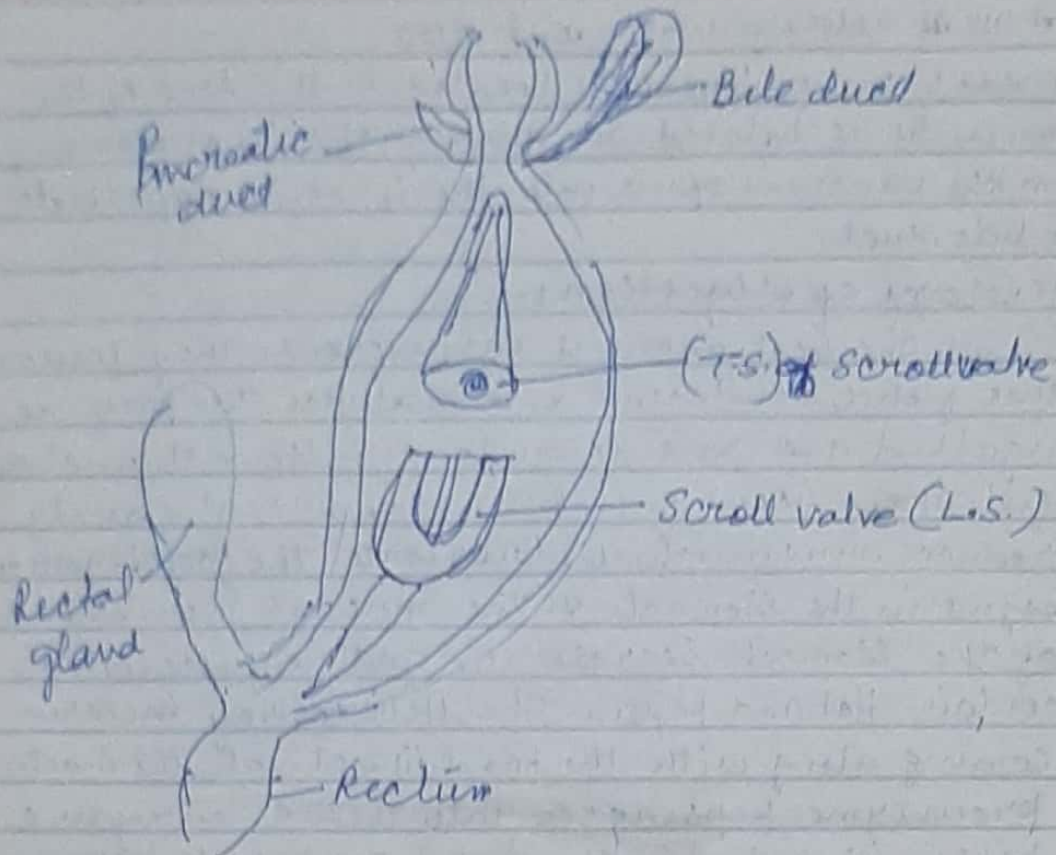 Bile duct
Pancreatic
duct
(T.S.) of Scroll valve
Scroll valve (L.S.)
Rectal
gland
Rectum